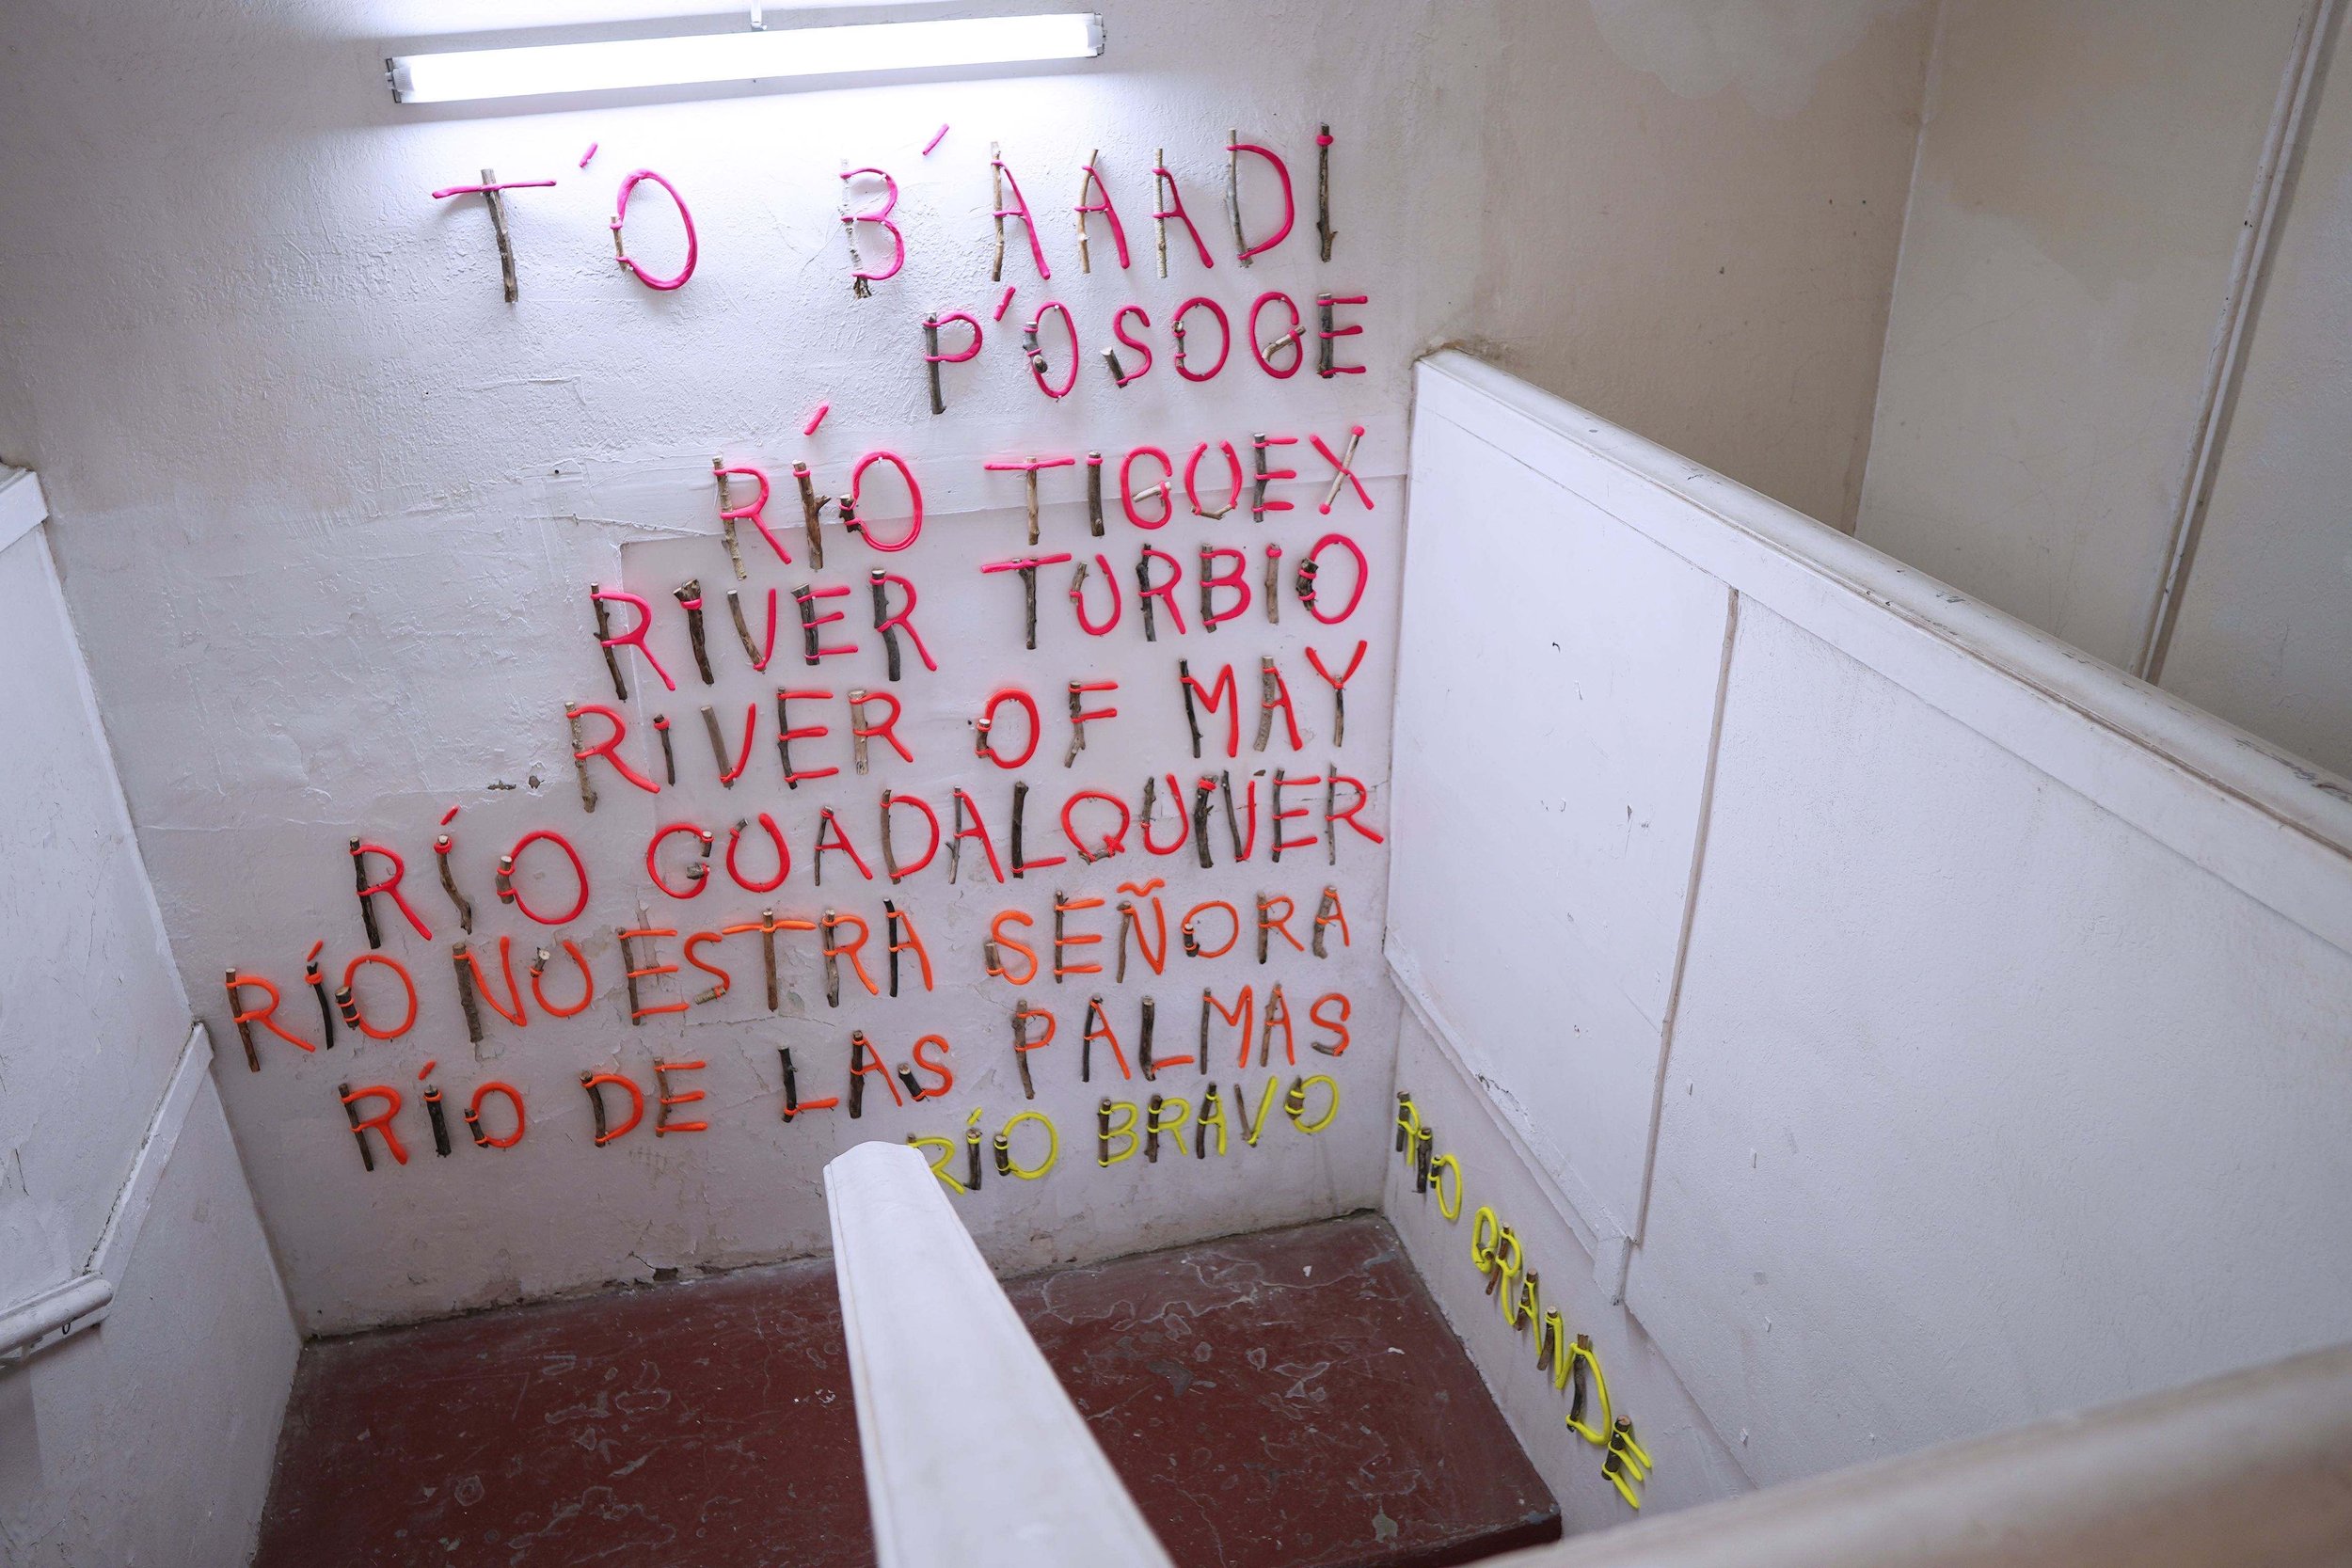 T´Ó B´ÁAADI
P´OSOGE
RÍO TIGUEX
RIVER TURBIO
RIVER OF MAY
RÍO GUADALQUIVER
RÍO NUESTRA SEÑORA
RÍO DE LAS PALMAS
RÍO BRAVO
RIO GRANDE